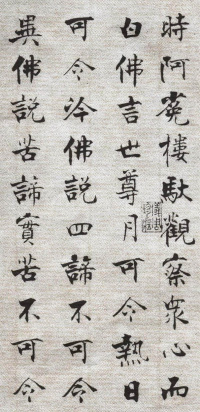 時阿㝹樓馱觀察衆心而
白佛言世尊月可令熱日
可令冷佛説四諦不可令
異佛説苦諦實苦不可令